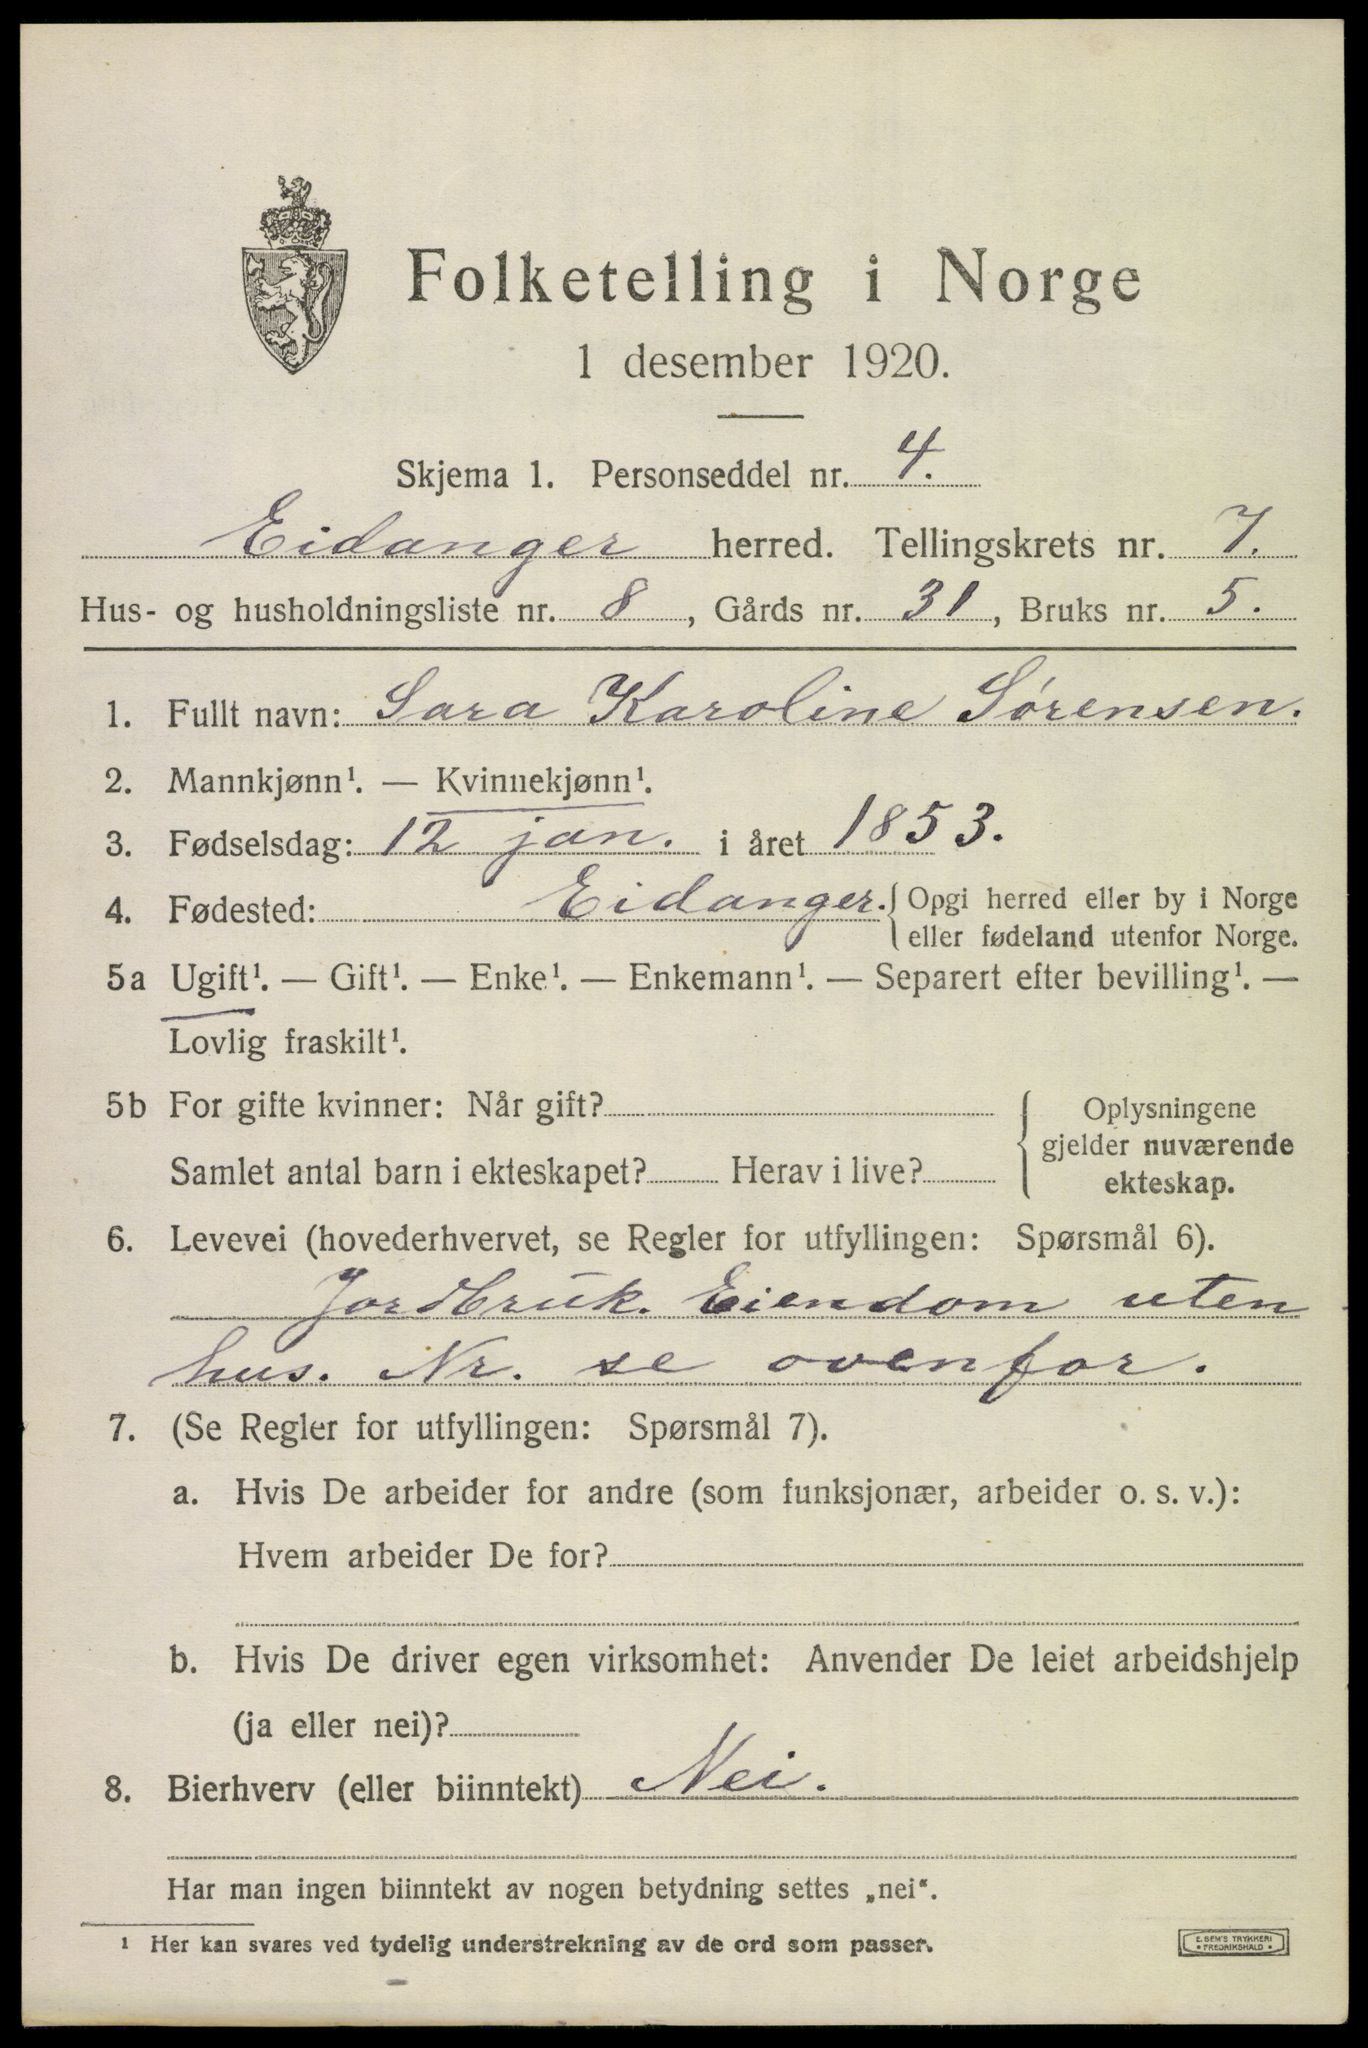 Folketelling i Norge
1 desember 1920.
Skjema 1. Personseddel nr. 4.
Eidanger herred. Tellingskrets nr. 7.
Hus- og husholdningsliste nr. 8, Gårds nr. 31, Bruks nr. 5.
1. Fullt navn: Sara Karoline Sørensen.
2. Mannkjønn¹. — Kvinnekjønn¹.
3. Fødselsdag: 12 jan. i året 1853.
4. Fødested: Eidanger. { Opgi herred eller by i Norge
eller fødeland utenfor Norge.
5a Ugift¹. — Gift¹. — Enke¹. — Enkemann¹. — Separert efter bevilling¹. —
Lovlig fraskilt¹.
5b For gifte kvinner: Når gift? { Oplysningene
gjelder nuværende
Samlet antal barn i ekteskapet? Herav i live? ekteskap.
6. Levevei (hovederhvervet, se Regler for utfyllingen: Spørsmål 6).
Jordbruk. Eiendom uten
hus. Nr. se ovenfor.
7. (Se Regler for utfyllingen: Spørsmål 7).
a. Hvis De arbeider for andre (som funksjonær, arbeider o. s. v.):
Hvem arbeider De for?
b. Hvis De driver egen virksomhet: Anvender De leiet arbeidshjelp
(ja eller nei)?
8. Bierhverv (eller biinntekt) Nei.
Har man ingen biinntekt av nogen betydning settes „nei“.
¹ Her kan svares ved tydelig understrekning av de ord som passer.
E. SEM'S TRYKKERI
* FREDRIKSHALD *